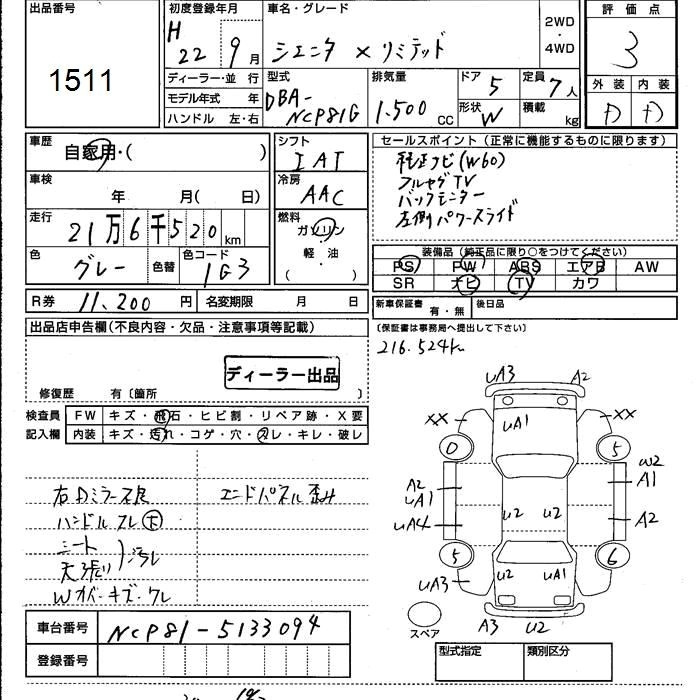 出品番号
1511
初度登録年月
H
22 9月
車名・グレード
シエンタ X リミテッド
2WD
・
4WD
評価点
3
ディーラー・並行
モデル年式 年
ハンドル 左・右
型式
DBA-
NCP81G
排気量
1.500 cc
ドア 5
形状 W
定員 7人
積載 kg
外装 内装
D D
車歴
自家用・( )
車検
年 月( 日)
走行
21万6千520km
色
グレー
色替
色コード
1G3
シフト
IAT
冷房
AAC
燃料
ガソリン
・
軽・油
( )
セールスポイント(正常に機能するものに限ります)
純正ナビ(W60)
フルセグTV
バックモニター
左側パワースライド
装備品(純正品に限り○をつけてください)
PS PW ABS エアB AW
SR ナビ TV カワ
R券 11,200 円
名変期限 月 日
新車保証書
有・無
後日品
(保証書は事務局へ提出して下さい)
216.524km
出品店申告欄(不良内容・欠品・注意事項等記載)
ディーラー出品
修復歴 有〔箇所 〕
検査員
記入欄
FW キズ・飛石・ヒビ割・リペア跡・X要
内装 キズ・汚れ・コゲ・穴・スレ・キレ・破レ
右Dミラー不良
エンドパネル歪み
ハンドルスレ 下
シート
天張り
Wカバーキズ・ワレ
uA3
A2
XX
uA1
XX
0
5
W2
A1
A2
uA1
uA4
U2
U2
A2
5
6
U2
uA1
uA3
スペア
A3
U2
車台番号 NCP81-5133094
登録番号
型式指定
類別区分